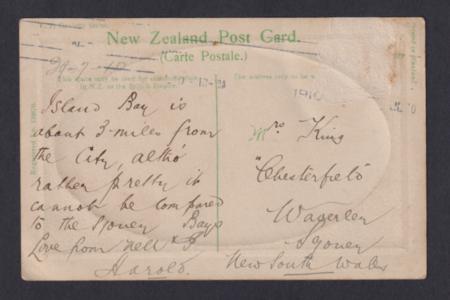 New Zealand Post Card.
(Carte Postale.)
20-7-10
This space may be used for correspondence
in N.Z. or the British Empire.
The address only to be
1910
Island Bay is
about 3 miles from
the City, altho'
rather pretty it
cannot be compared
to the Sydney Bays
Love from Nell &
Harold.
Mrs King
"Chesterfield"
Waverley
Sydney
New South Wales